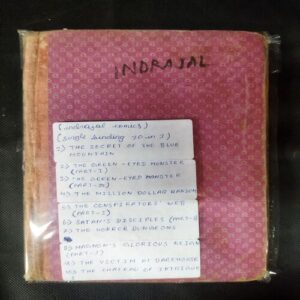 INDRAJAL
(indrajal comics)
(single binding 10 in 1)
1) THE SECRET OF THE BLUE
MOUNTAIN
2) THE GREEN-EYED MONSTER
(PART-I)
3) THE GREEN-EYED MONSTER
(PART-II)
4) THE MILLION DOLLAR
5) THE CONSPIRATORS' WEB
(PART-I)
6) SATAN'S DISCIPLES (PART-II)
7) THE HORROR DUNGEONS
8) GLORIOUS REIGN
(PART-I)
9) THE VICTIM OF
10) THE CHATEAU OF INTRIGUE